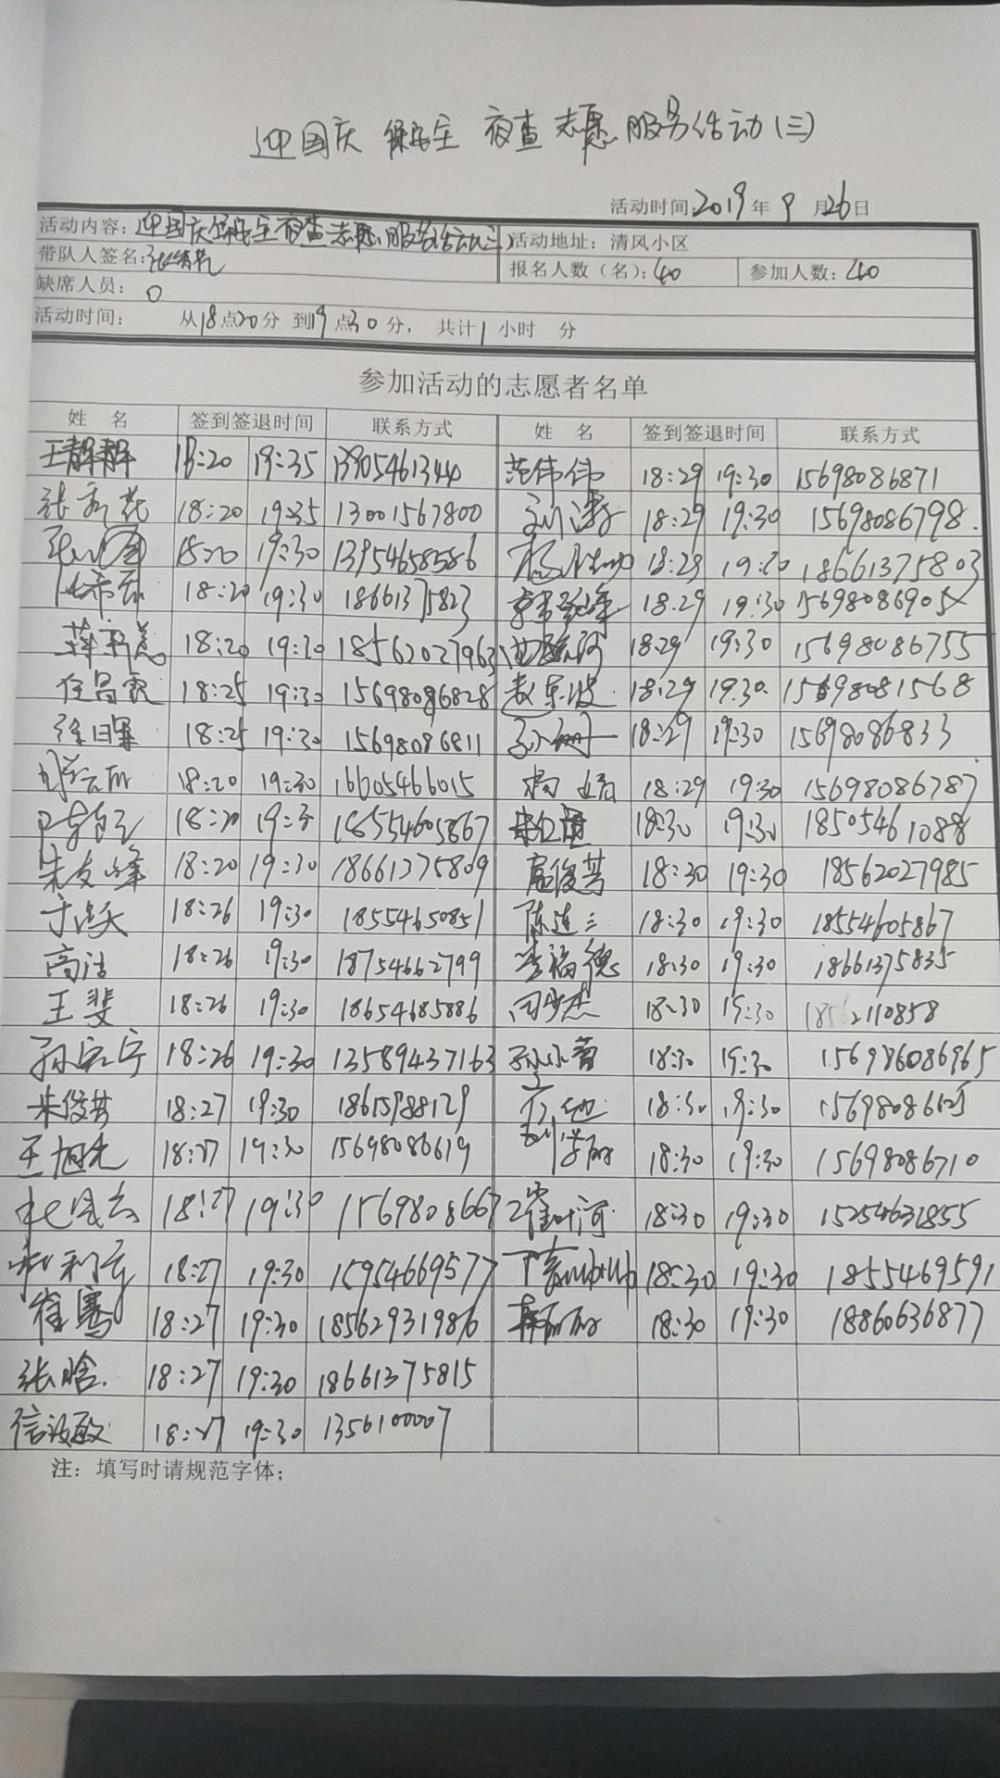 迎国庆 保安全 夜查志愿服务活动(三)
活动时间:2019年9月26日
活动内容:迎国庆保安全夜查志愿服务活动(三) 活动地址:清风小区
带队人签名: 报名人数(名):40 参加人数:40
缺席人员:0
活动时间: 从18点20分 到19点30分, 共计1小时 分
参加活动的志愿者名单
姓 名 签到签退时间 联系方式 姓 名 签到签退时间 联系方式
王静静 18:20 19:35 13905461344 范伟伟 18:29 19:30 15698086871
张秀花 18:20 19:35 13001567800 刘涛 18:29 19:30 15698086798
18:20 19:30 13954658586 18:29 19:30 18661375803
18:20 19:30 18661375823 18:29 19:30 1569808690
18:20 19:30 18562027963 18:29 19:30 15698086755
任昌霞 18:25 19:30 15698086828 赵东波 18:29 19:30 15698081568
徐日军 18:25 19:30 15698086811 18:29 19:30 15698086833
18:20 19:30 16605466015 杨娟 18:29 19:30 15698086787
18:20 19:3 185554605867 18:30 19:30 18505461088
朱友峰 18:20 19:30 18661375809 扈俊芳 18:30 19:30 18562027985
于跃 18:26 19:30 18554650851 陈连三 18:30 19:30 18554605867
高洁 18:26 19:30 18754662799 李福德 18:30 19:30 18661375835
王斐 18:26 19:30 18654685886 18:30 19:30 18562110858
孙宗宁 18:26 19:30 13589437163 孙小菁 18:30 19:30 156986086965
朱俊芳 18:27 19:30 18615988129 18:30 19:30
王旭光 18:27 19:30 15698086619 刘学丽 18:30 19:30 15698086710
18:27 19:30 15698086672 霍叶河 18:30 19:30 15254631855
18:27 19:30 15954669577 18:30 19:30 1855469591
崔骞 18:27 19:30 18562931986 韩丽丽 18:30 19:30 18860636877
张晗 18:27 19:30 18661375815
信汝敏 18:27 19:30 1356100007
注:填写时请规范字体;